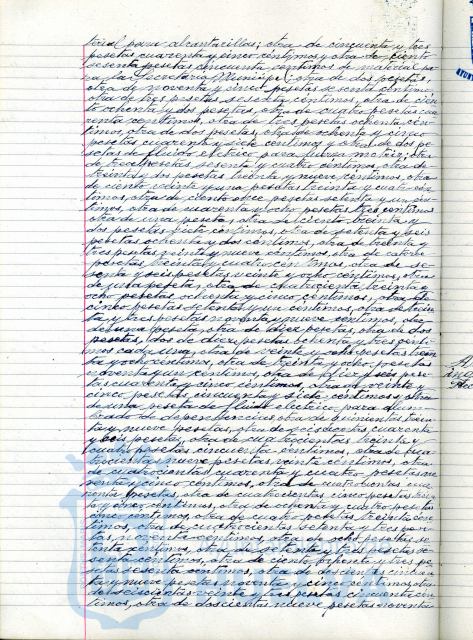 trial para alcantarillas; otra de cincuenta y tres
pesetas cuarenta y cinco céntimos y otra de ciento
sesenta pesetas cincuenta céntimos de material pa-
ra la Secretaría Municipal; otra de dos pesetas,
otra de noventa y cinco pesetas sesenta céntimos,
otra de tres pesetas sesenta céntimos, otra de cien-
to ochenta y dos pesetas, otra de cuatro pesetas cua-
renta céntimos, otra de tres pesetas ochenta cén-
timos, otra de dos pesetas, otra de ochenta y cinco
pesetas cuarenta y siete céntimos y otra de dos pe-
setas de fluido eléctrico para fuerza motriz; otra
de tres pesetas setenta y cuatro céntimos, otra de
treinta y dos pesetas treinta y nueve céntimos, otra
de ciento veinte y una pesetas treinta y cuatro cén-
timos, otra de ciento once pesetas setenta y un cén-
timos, otra de cuarenta y ocho pesetas tres céntimos
otra de una peseta, otra de ciento treinta y
dos pesetas siete céntimos, otra de setenta y seis
pesetas ochenta y dos céntimos, otra de treinta y
tres pesetas veinte y nueve céntimos, otra de catorce
pesetas treinta y cuatro céntimos, otra de se-
senta y seis pesetas veinte y ocho céntimos, otra
de una peseta, otra de cuatrocientas treinta y
ocho pesetas ochenta y cinco céntimos, otra de
cinco pesetas setenta y un céntimos, otra de trein-
ta y tres pesetas noventa y nueve céntimos, otra
de una peseta, otra de diez pesetas, otra de dos
pesetas, dos de diez pesetas ochenta y tres cénti-
mos cada una, otra de veinte y ocho pesetas trein-
ta y ocho céntimos, otra de treinta y ocho pesetas
noventa y un céntimos, otra de diez y seis pese-
tas cuarenta y cinco céntimos, otra de veinte y
cinco pesetas cincuenta y siete céntimos y otra
de una peseta de fluido eléctrico para alum-
brado de dependencias, otra de quinientas trein-
ta y nueve pesetas, otra de seiscientas cuarenta
y seis pesetas, otra de cuatrocientas treinta y
cuatro pesetas cincuenta céntimos, otra de cua-
trocientas nueve pesetas veinte céntimos, otra
de cuatrocientas cuarenta y cuatro pesetas no-
venta y cinco céntimos, otra de cuatrocientas cua-
renta pesetas, otra de cuatrocientas cinco pesetas trein-
ta y cinco céntimos, otra de ochenta y cuatro pesetas
cinco céntimos, otra de cuatro pesetas treinta cén-
timos, otra de cuatrocientas setenta y tres pese-
tas noventa céntimos, otra de ocho pesetas se-
tenta céntimos, otra de setenta y tres pesetas se-
senta céntimos, otra de ciento sesenta y tres pe-
setas sesenta céntimos, otra de cien cincuen-
ta y nueve pesetas noventa y cinco céntimos, otra
de seiscientas veinte y tres pesetas cincuenta cén-
timos, otra de doscientas nueve pesetas noventa